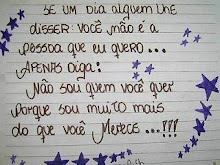 SE UM DIA ALGUEM LHE
DISSER: VOCÊ NÃO É A
PESSOA QUE EU QUERO...
APENAS DIGA:
NÃO SOU QUEM VOCÊ QUER
PORQUE SOU MUITO MAIS
DO QUE VOCÊ MERECE...!!!